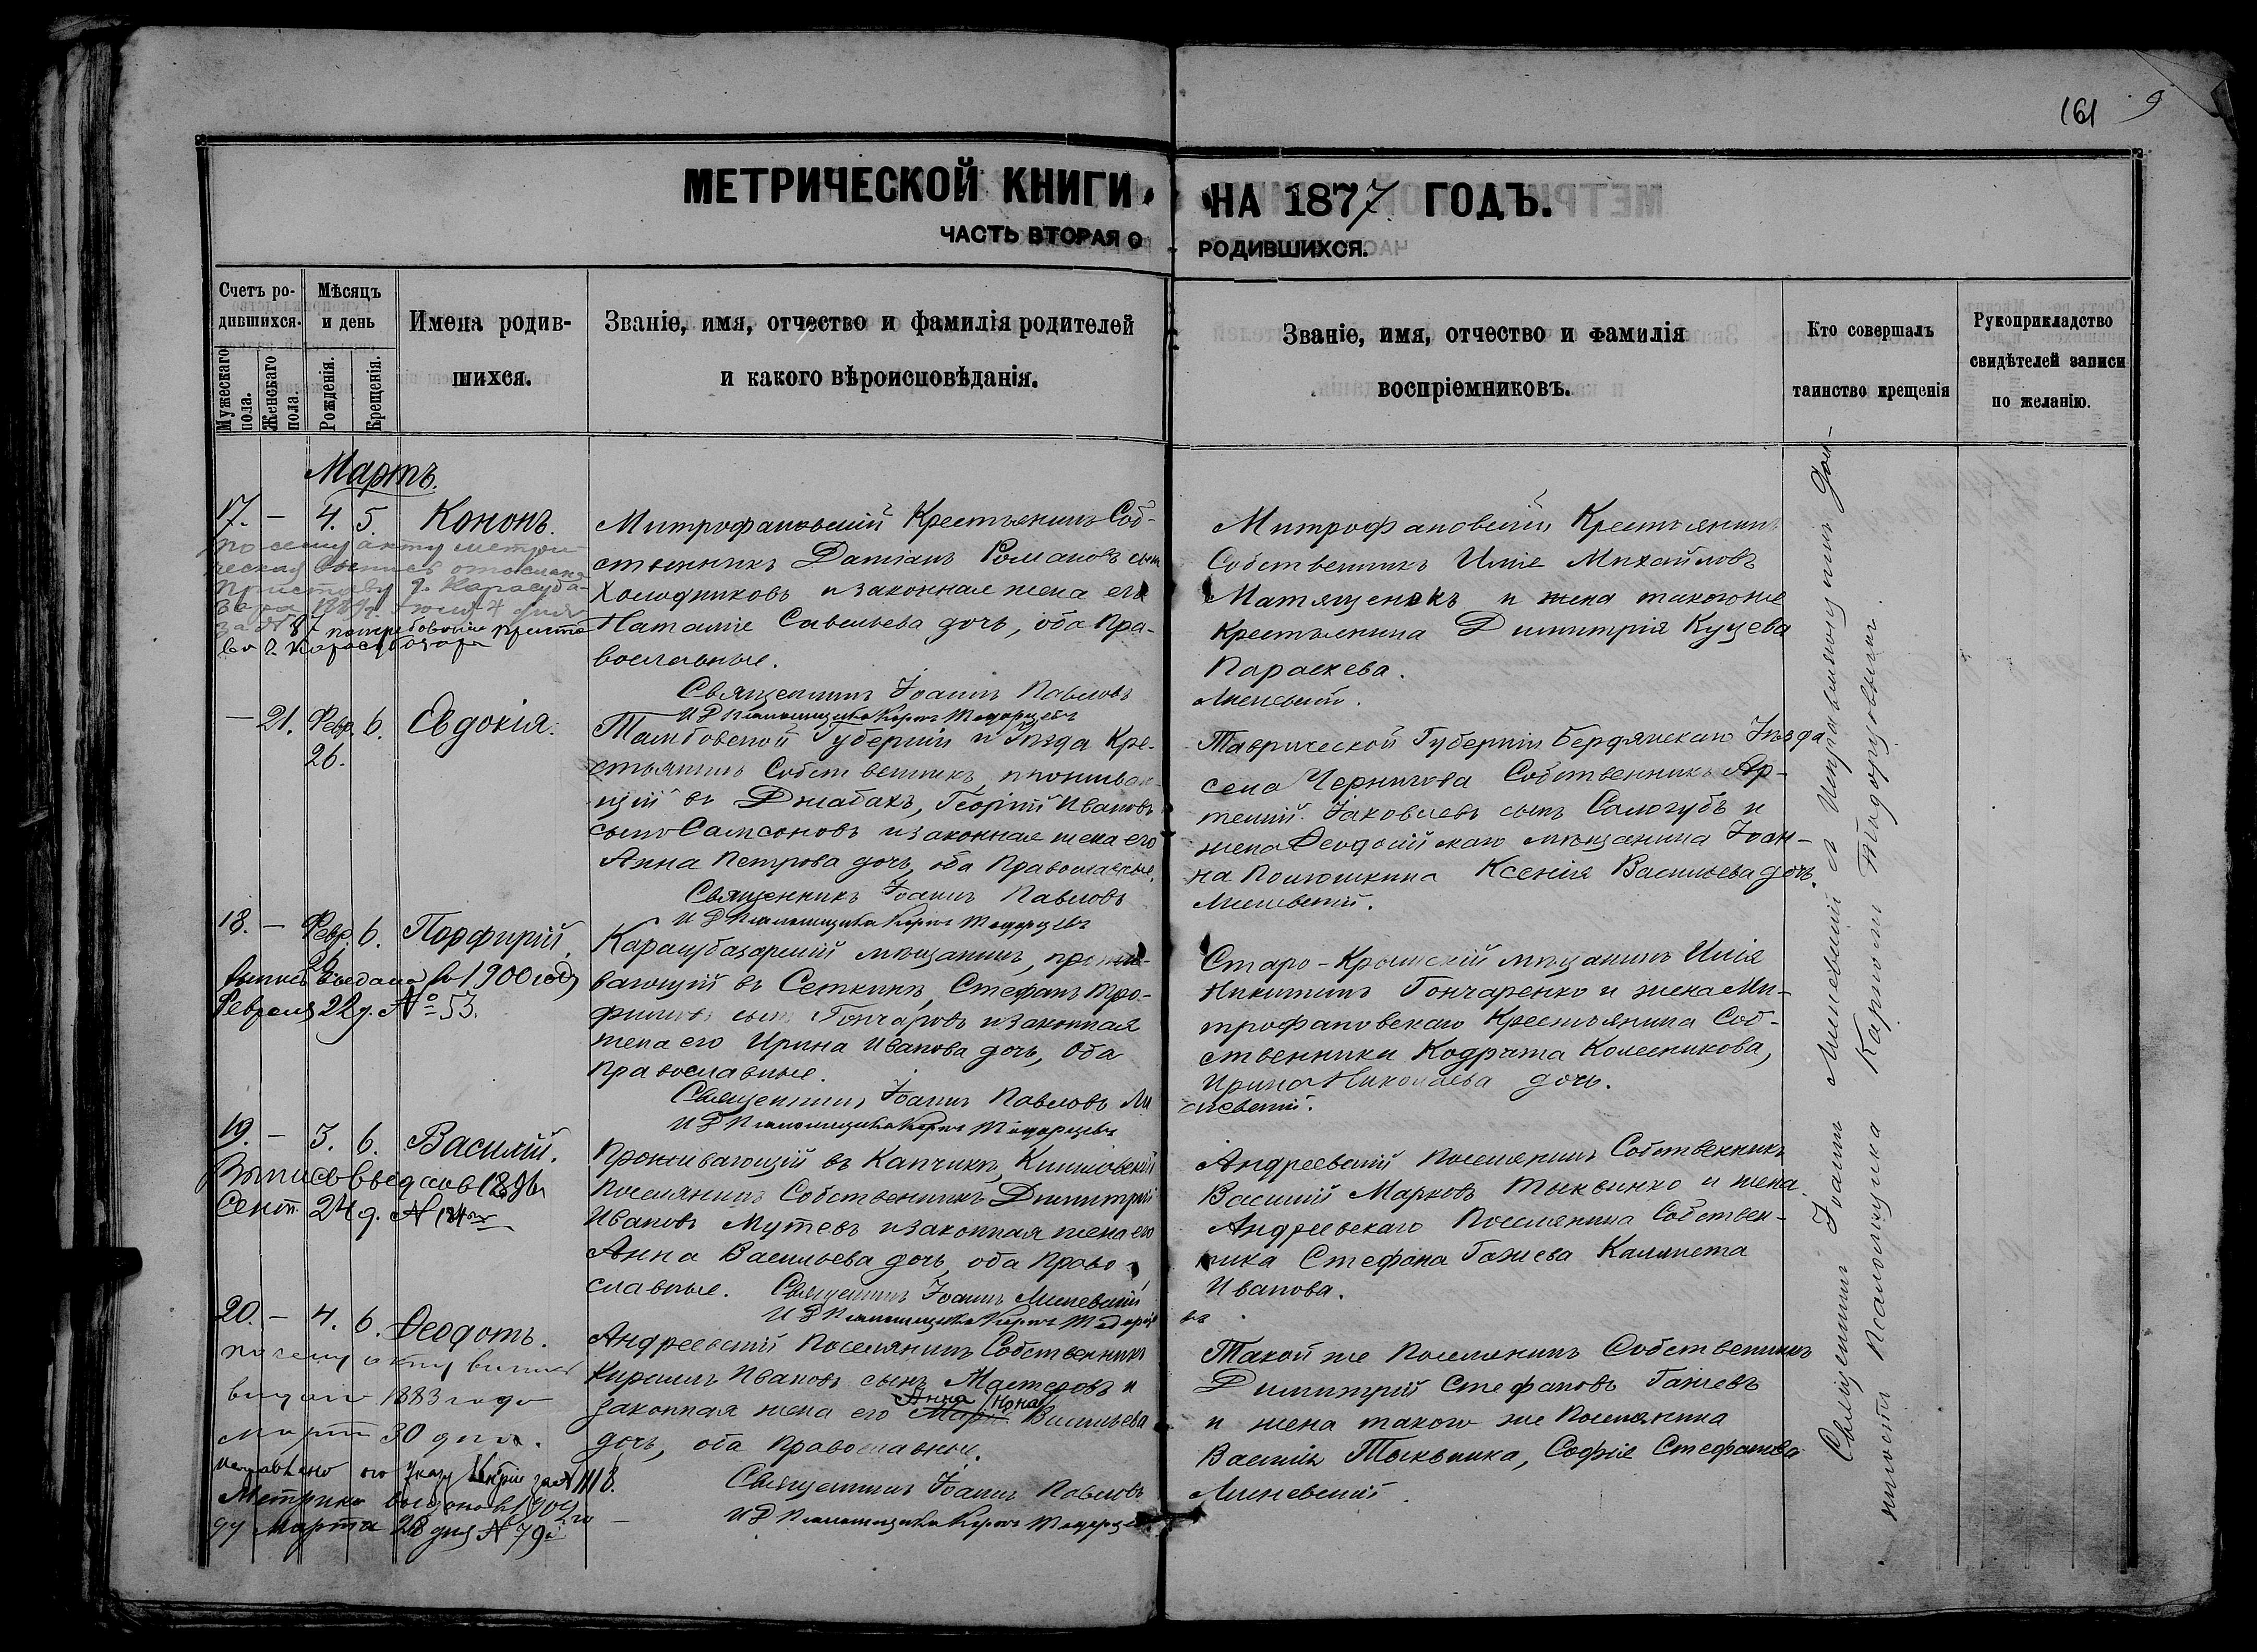 161 9
МЕТРИЧЕСКОЙ КНИГИ НА 1877 ГОДЪ.
ЧАСТЬ ВТОРАЯ О РОДИВШИХСЯ.
Счетъ ро-
дившихся.
Мужескаго пола.
Женскаго пола.
Мѣсяцъ
и день
Рожденія.
Крещенія.
Имена родив-
шихся.
Званіе, имя, отчество и фамилія родителей
и какого вѣроисповѣданія.
Званіе, имя, отчество и фамилія
воспріемниковъ.
Кто совершалъ
таинство крещенія
Рукоприкладство
свидѣтелей записи
по желанію.
Мартъ.
17. — 4. 5. Кононъ.
по сему акту метри
ческая отослана
Приставу г. Карасуба-
зара 1889 4 дня
за № 87
Митрофановскій Крестьянинъ Соб-
ственникъ Даміанъ Романовъ сынъ
Холодниковъ и законная жена его
Наталіе Савельева дочь, оба Пра-
вославные.
Священникъ Іоаннъ Павловъ
Митрофановскій Крестьянинъ
Собственникъ Иліе Михайловъ
Матященкъ и жена такогоже
Крестьянина Димитрія Куцева
Параскева.
Линевскій.
— 21. Февр. 26. 6. Евдокія.
Тамбовской Губерніи и Уѣзда Кре-
стьянинъ Собственникъ, проживаю-
щій въ Джабахъ, Георгій Ивановъ
сынъ Самсоновъ и законная жена его
Анна Петрова дочь, оба Православные.
Священникъ Іоаннъ Павловъ
Таврической Губерніи Бердянскаго Уѣзда
села Собственникъ Ар-
темій Іаковлевъ сынъ Сологубъ и
жена Ѳеодосійскаго мѣщанина Іоан-
на Ксенія Васильева дочь.
Линевскій.
18. — Февр. 26. 6. Порфирій.
выдана въ 1900 году
Февраля 22 д. № 53.
Карасубазарскій мѣщанинъ, прожи-
вающій въ Сеткинъ, Стефанъ Тро-
фимовъ сынъ Гончаровъ и законная
жена его Ирина Иванова дочь, Оба
Православные.
Священникъ Іоаннъ Павловъ Ли
Старо-Крымскій мѣщанинъ Илія
Никитинъ Гончаренко и жена Ми-
трофановскаго Крестьянина Соб-
ственника Кодрата Колесникова,
Ирина Николаева дочь.
невскій.
19. — 3. 6. Василій.
Выпись выдана в 1896 г
Сент. 24 д. №
Проживающій въ Капчикъ, Кишловскій
Поселянинъ Собственникъ Димитрій
Ивановъ Мутевъ и законная жена его
Анна Васильева дочь, оба Право-
славные. Священникъ Іоаннъ Линевскій
Андреевскій Поселянинъ Собственникъ
Василій Марковъ и жена
Андреевскаго Поселянина Собствен-
ника Стефана Гажева
Иванова.
20. — 4. 6. Ѳеодотъ.
по сему акту выпись
выдана 1883 года
Марта 30 дня.
Метрика выдана въ
ду Марта 28 дня № 79
Андреевскій Поселянинъ Собственникъ
Кириллъ Ивановъ сынъ и
Анна
законная жена его Васильева
дочь, оба Православные.
Священникъ Іоаннъ Павловъ
Такой же Поселянинъ Собственникъ
Димитрій Стефановъ Гажевъ
и жена такого же Поселянина
Василія Софіе Стефанова
Линевскій.
Священникъ Іоаннъ Линевскій и Исправляющій Дол-
жность Псаломщика Карпъ